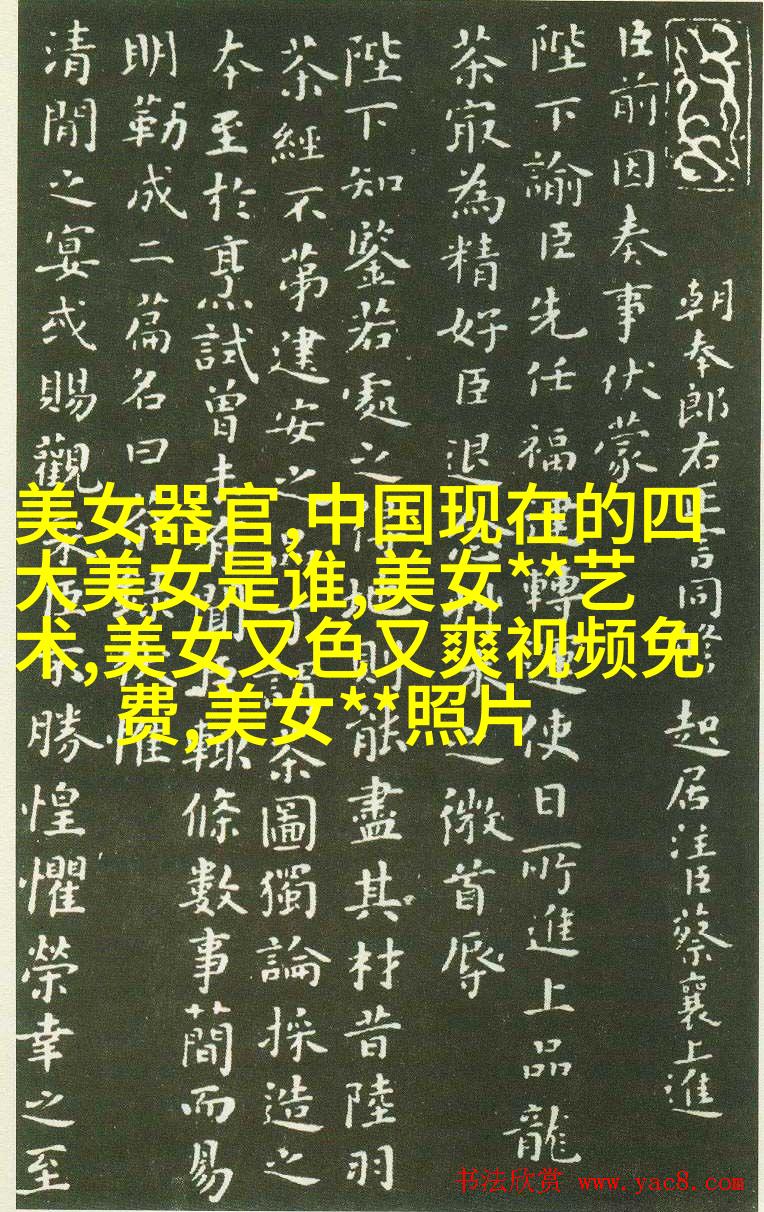 朝奉郎右正言同修起居注臣蔡襄上進
臣前因奏事伏蒙
陛下諭臣先任福轉使日所進上品龍
茶最為精好臣退之微首辱
陛下知鑒若處之得地則能盡其材昔陸羽
茶經不第建安之茶圖獨論採造之
本至於烹試曾未有聞輒條數事簡而易
明勒成二篇名曰惟
清閒之宴或賜觀勝惶懼榮幸之至
美女器官,中国现在的四
大美女是谁,美女**艺
术,美女又色又爽视频免
费,美女**照片
书法欣赏 www.yac8.com